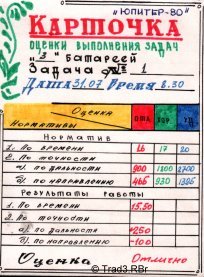 "ЮПИТЕР-80"
КАРТОЧКА
ОЦЕНКИ ВЫПОЛНЕНИЯ ЗАДАЧ
"3" батареей
Задача 1
Дата 31.07 Время 8.30
Оценка
Нормативы
Норматив
1. По времени 16 17 20
2. По точности
а) по дальности 900 1800 2700
б) по направлению 466 930 1395
Результаты работы
1. По времени 15.50
2. По точности
а) по дальности +250
б) по направлению -100
Оценка Отлично
© Trad3.RBr